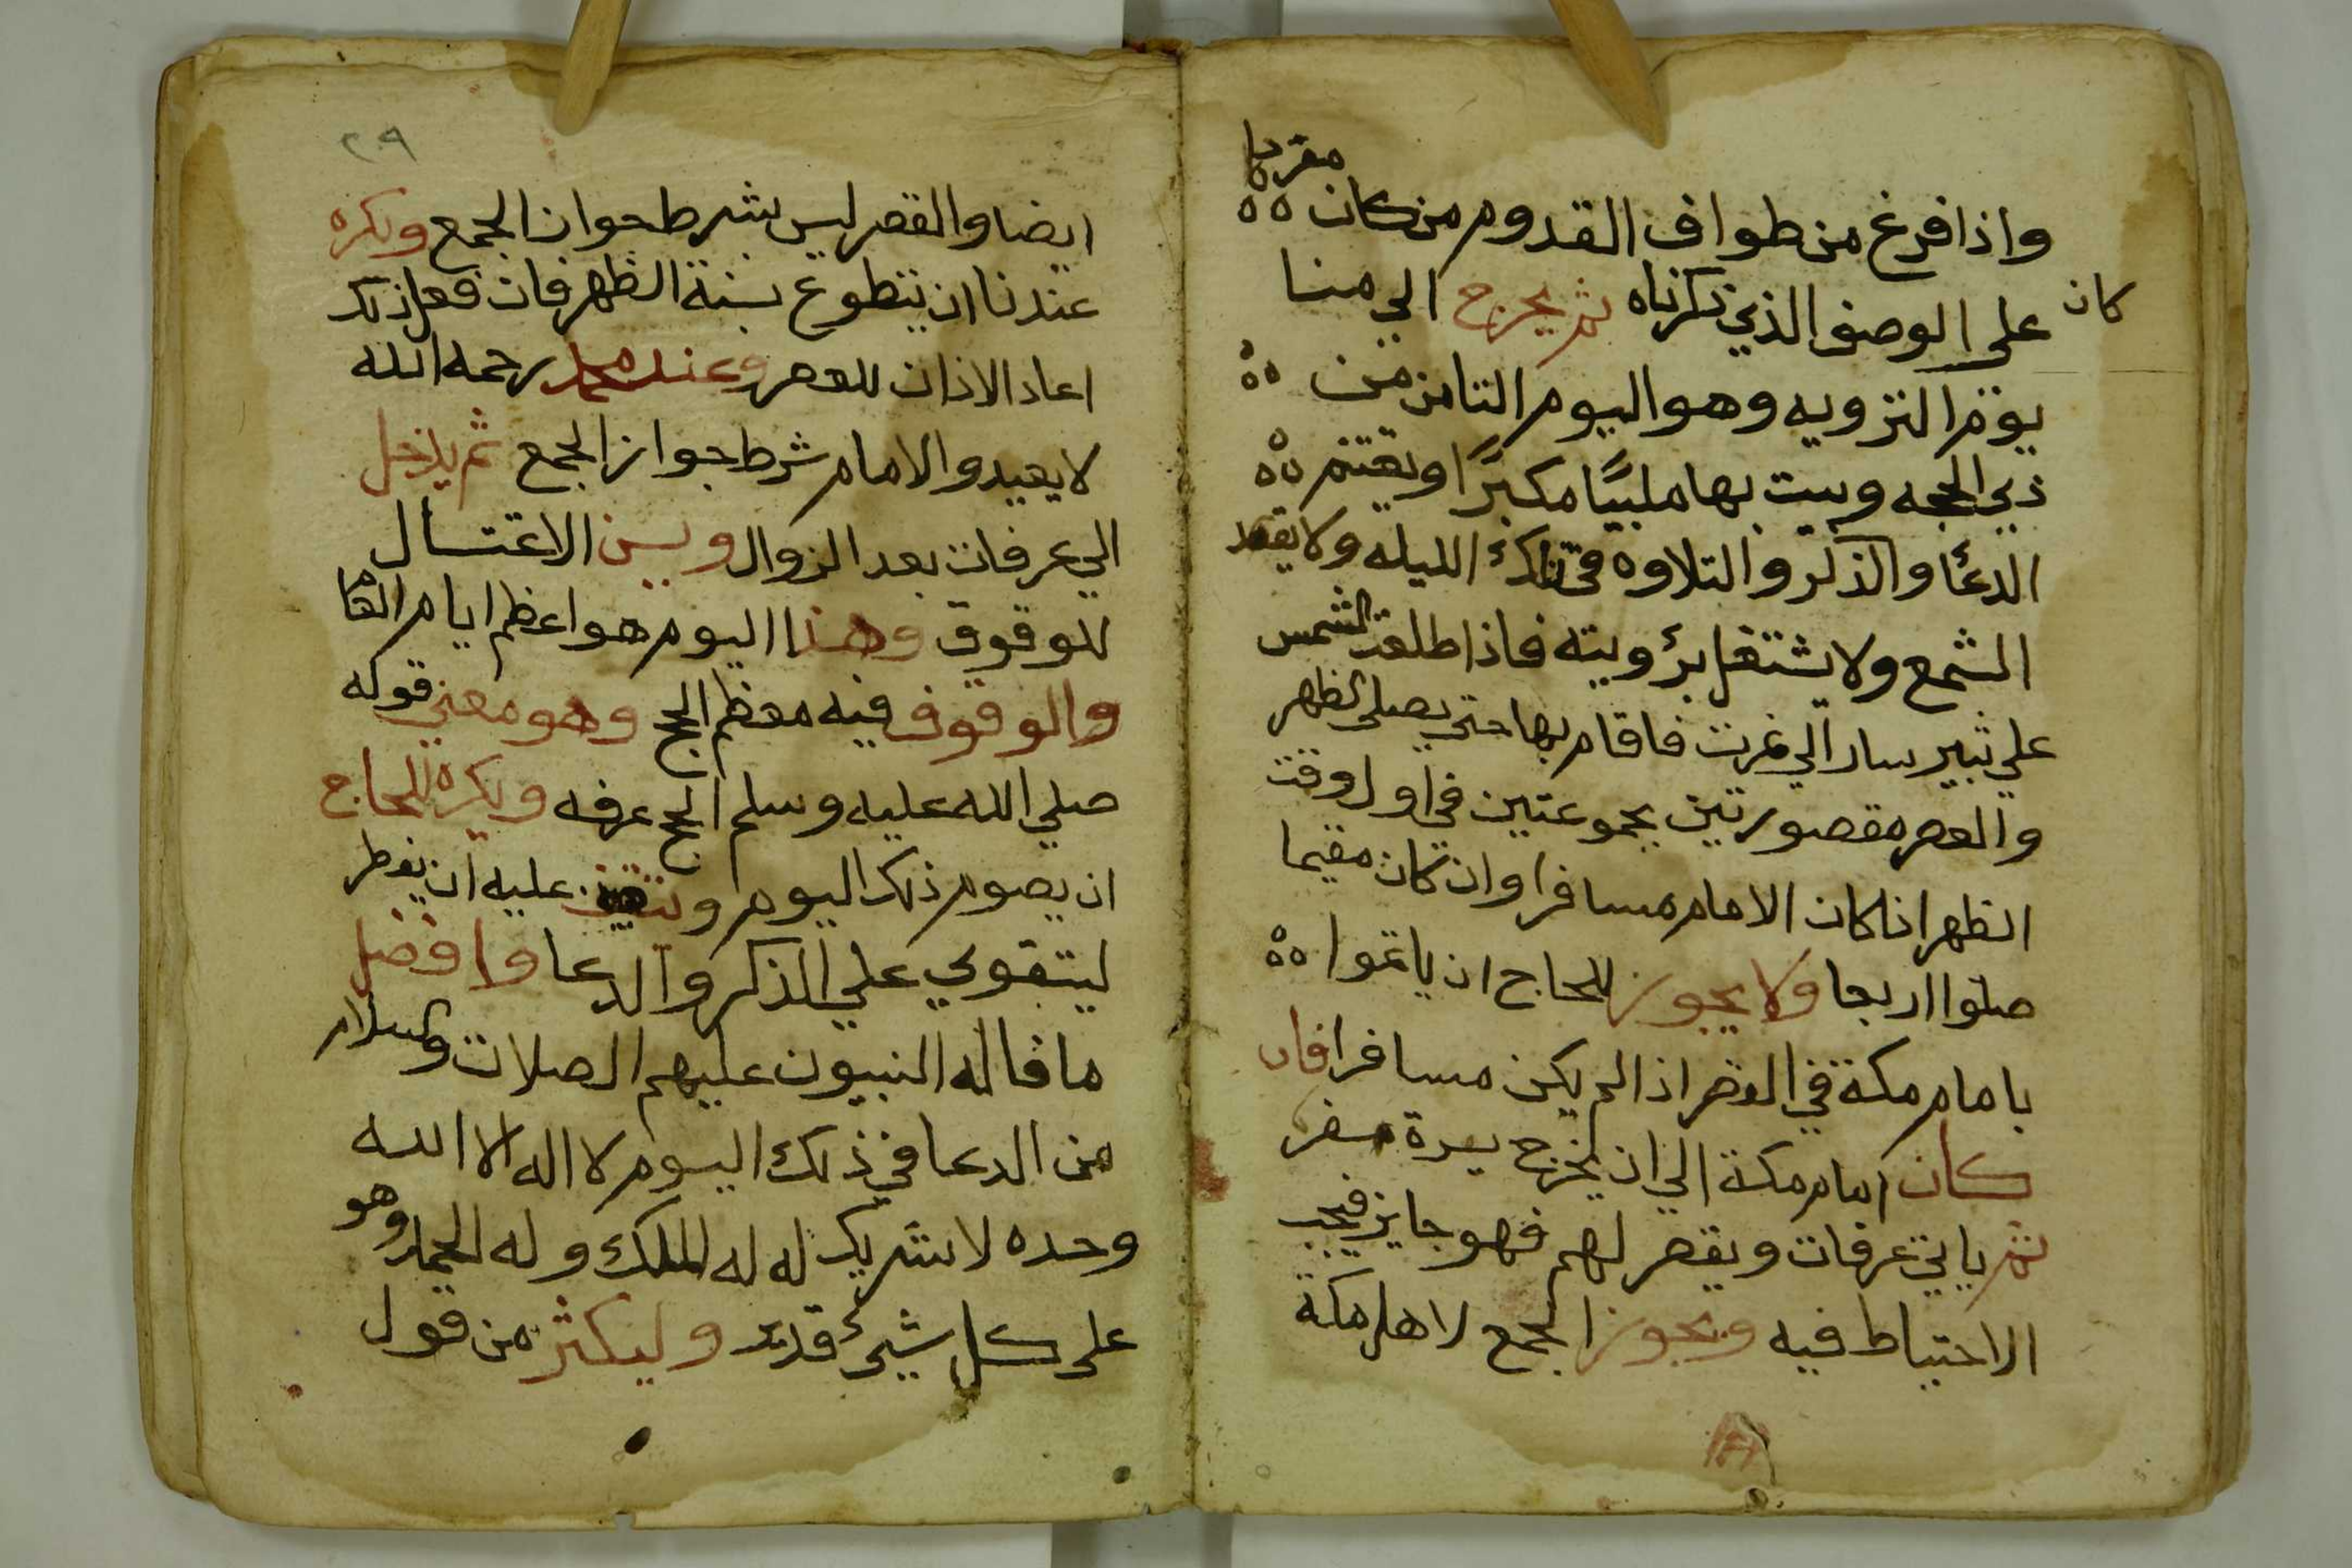 واذا فرغ من طواف القدوم من كان مفردا
كان
على الوصف الذي ذكرناه ثم يخرج الي منا
يوم التروية وهو اليوم الثامن من
ذي الحجه ويبيت بها ملبيًا مكبرًا ويغتنم
الدعاء والذكر والتلاوه في تلك الليله ولا يقد
الشمع ولا يشتغل برؤيته فاذا طلعت الشمس
علي ثبير سار الي نمرت فاقام بها حتي يصلي الظهر
والعصر مقصورتين مجموعتين في اول وقت
الظهر اذا كان الامام مسافرا وان كان مقيما
صلوا اربعا ولا يجوز للحاج ان ياتموا
بامام مكة في القصر اذا لم يكن مسافرا فان
كان امام مكة الي ان يخرج سفر
ثم ياتي عرفات ويقصر لهم فهو جايز فيجب
الاحتياط فيه ويجوز الجمع لاهل مكة
٢٩
ايضا والقصر ليس بشرط جواز الجمع ويكره
عندنا ان يتطوع بسنة الظهر فان فعل ذلك
اعاد الاذان للعصر وعند محمد رحمه الله
لا يعيد والامام شرط جواز الجمع ثم يدخل
الي عرفات بعد الزوال ويسن الاغتسال
للوقوف وهذا اليوم هو اعظم ايام
والوقوف فيه معظم الحج وهو معني قوله
صلي الله عليه وسلم الحج عرفه ويكره للحاج
ان يصوم ذلك اليوم عليه ان يفطر
ليتقوي علي الذكر والدعا وافضل
ما قاله النبيون عليهم الصلات والسلام
من الدعا في ذلك اليوم لا اله الا الله
وحده لا شريك له له الملك وله الحمد وهو
على كل شيء قدير وليكثر من قول